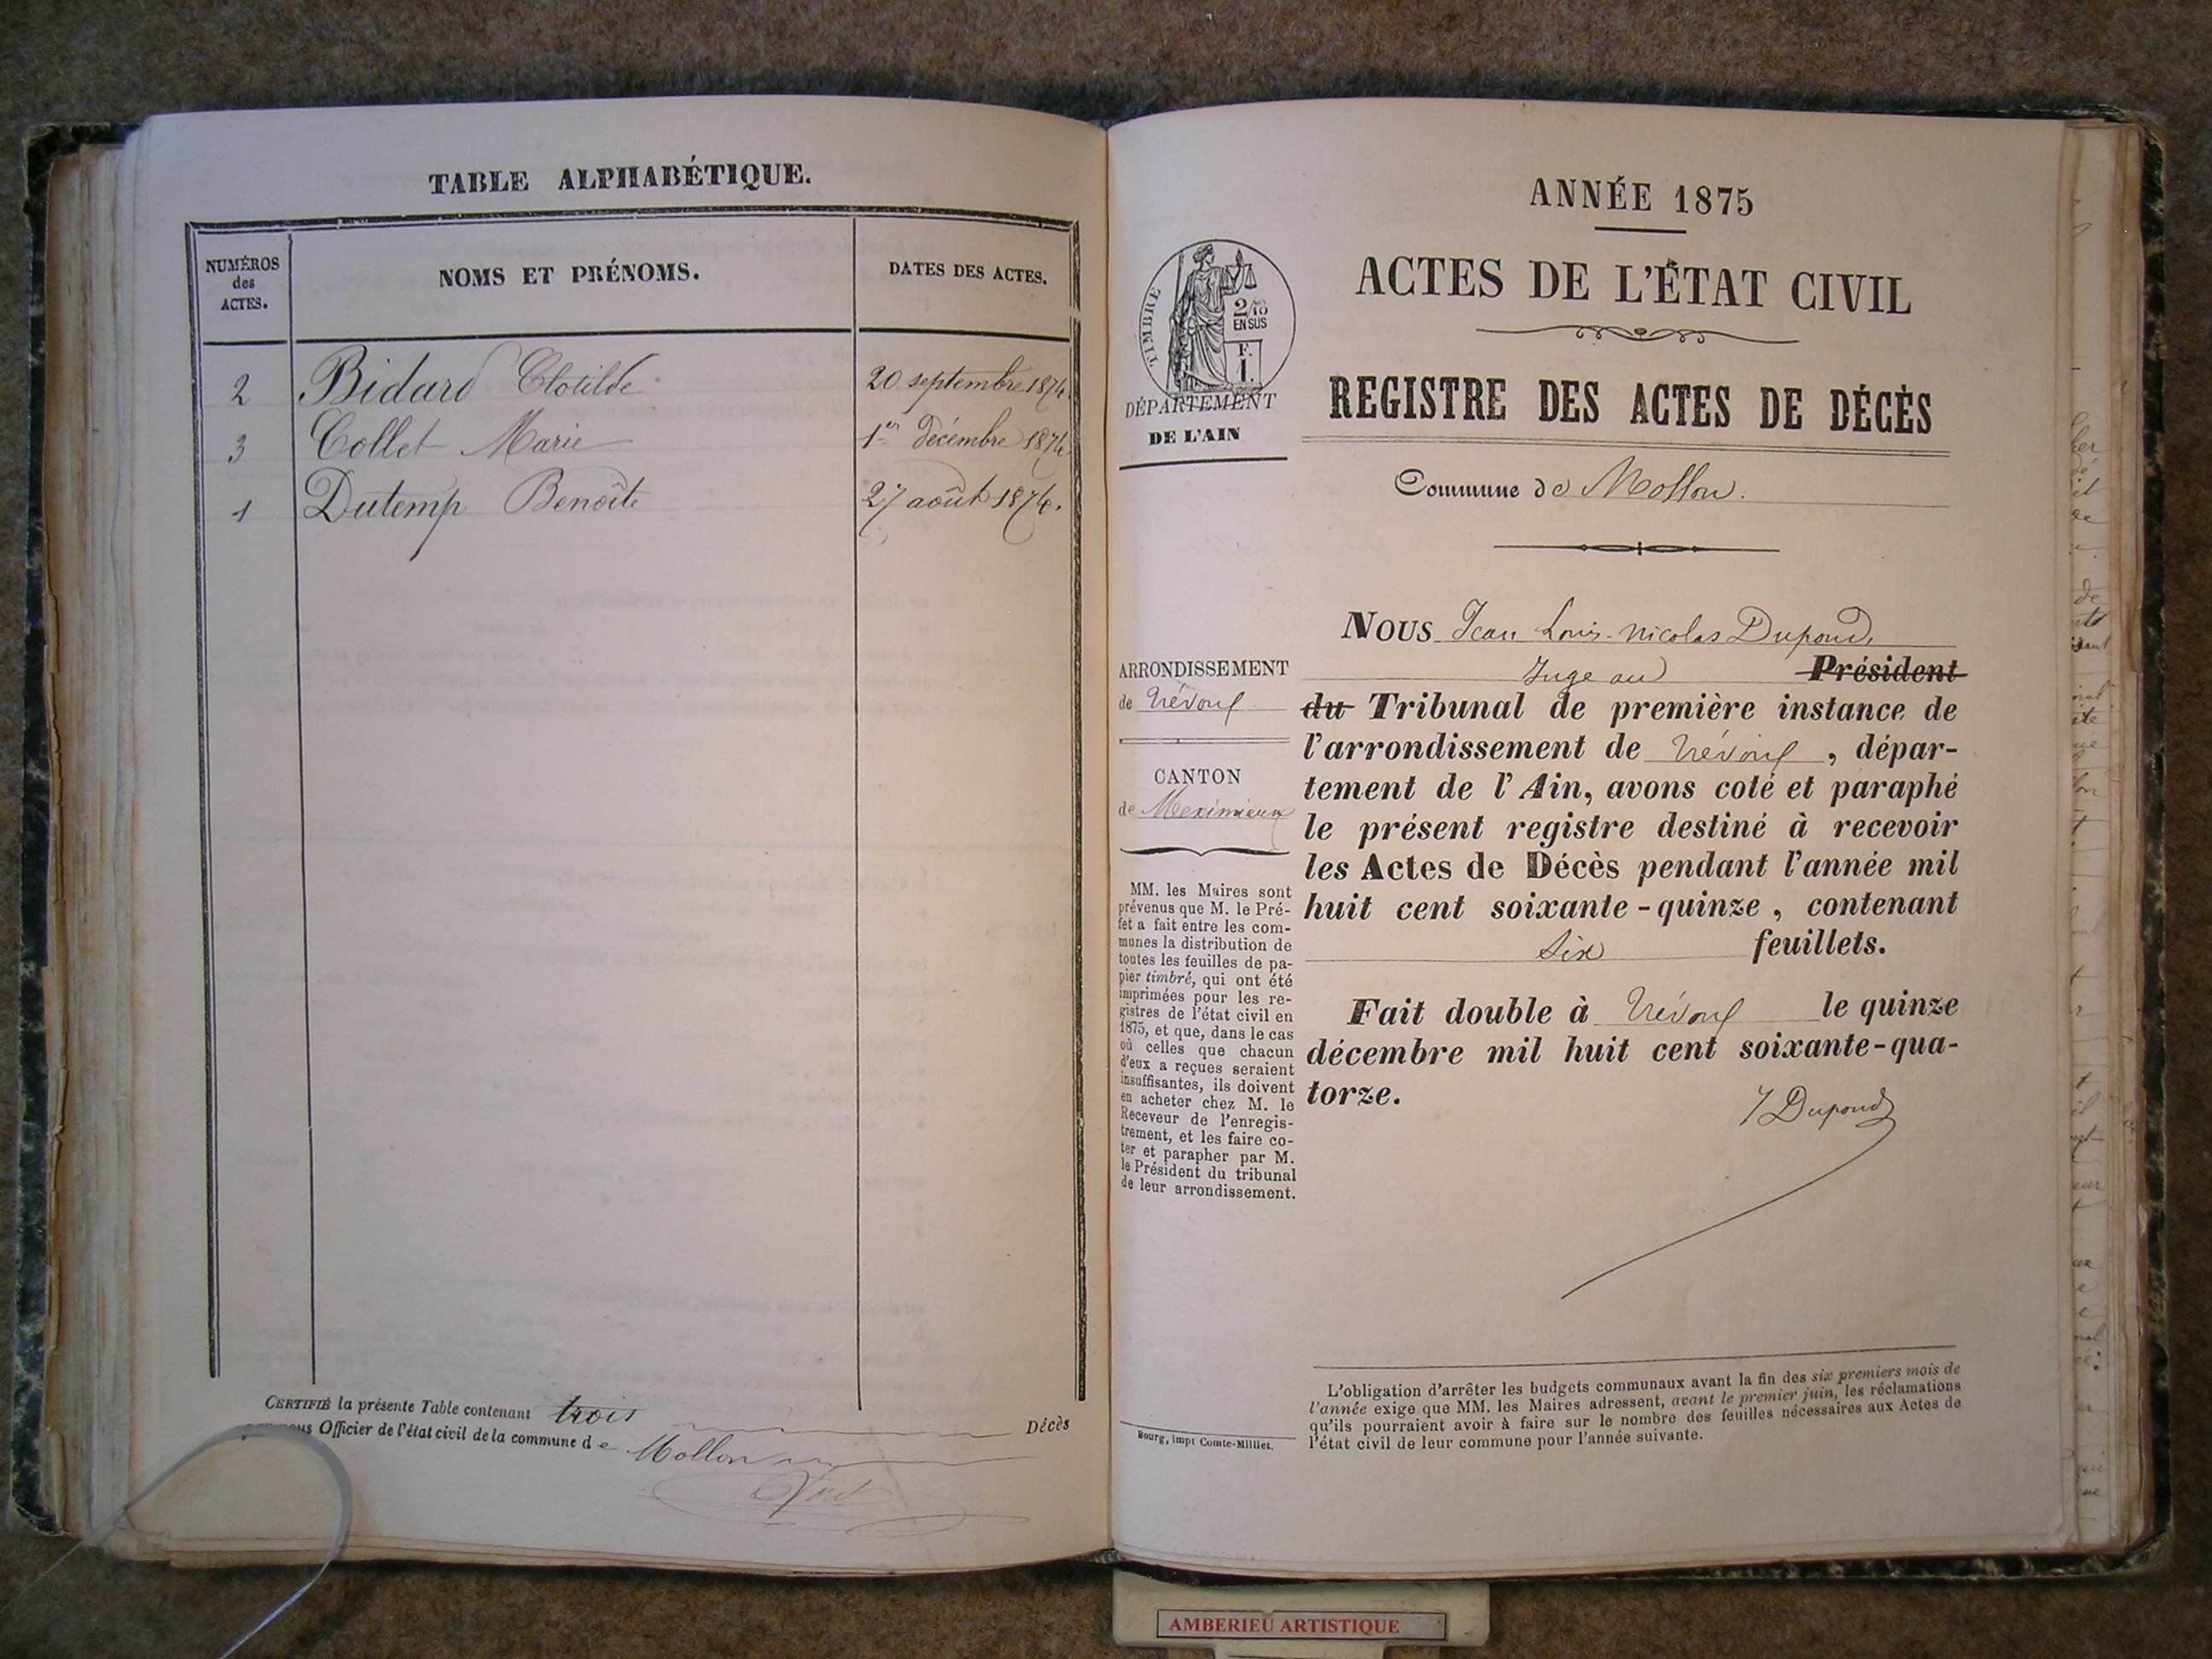 TABLE ALPHABÉTIQUE.
NUMÉROS
des
ACTES.
NOMS ET PRÉNOMS.
DATES DES ACTES.
2 Bidard Clotilde 20 septembre 1874
3 Collet Marie 1er décembre 1874
1 Dutemp Benoîte 27 août 1874.
CERTIFIÉ la présente Table contenant trois Décès
nous Officier de l'état civil de la commune de Mollon
ANNÉE 1875
ACTES DE L'ÉTAT CIVIL
REGISTRE DES ACTES DE DÉCÈS
Commune de Mollon.
TIMBRE
2/10
EN SUS
F.
1.
DÉPARTEMENT
DE L'AIN
ARRONDISSEMENT
de Trévoux
CANTON
de Meximieux
MM. les Maires sont
prévenus que M. le Pré-
fet a fait entre les com-
munes la distribution de
toutes les feuilles de pa-
pier timbré, qui ont été
imprimées pour les re-
gistres de l'état civil en
1875, et que, dans le cas
où celles que chacun
d'eux a reçues seraient
insuffisantes, ils doivent
en acheter chez M. le
Receveur de l'enregis-
trement, et les faire co-
ter et parapher par M.
le Président du tribunal
de leur arrondissement.
Bourg, impr Comte-Milliet.
NOUS Jean Louis-Nicolas Dupond,
Juge au Président
du Tribunal de première instance de
l'arrondissement de Trévoux, dépar-
tement de l'Ain, avons coté et paraphé
le présent registre destiné à recevoir
les Actes de Décès pendant l'année mil
huit cent soixante-quinze, contenant
Six feuillets.
Fait double à Trévoux le quinze
décembre mil huit cent soixante-qua-
torze.
J Dupond
L'obligation d'arrêter les budgets communaux avant la fin des six premiers mois de
l'année exige que MM. les Maires adressent, avant le premier juin, les réclamations
qu'ils pourraient avoir à faire sur le nombre des feuilles nécessaires aux Actes de
l'état civil de leur commune pour l'année suivante.
AMBERIEU ARTISTIQUE